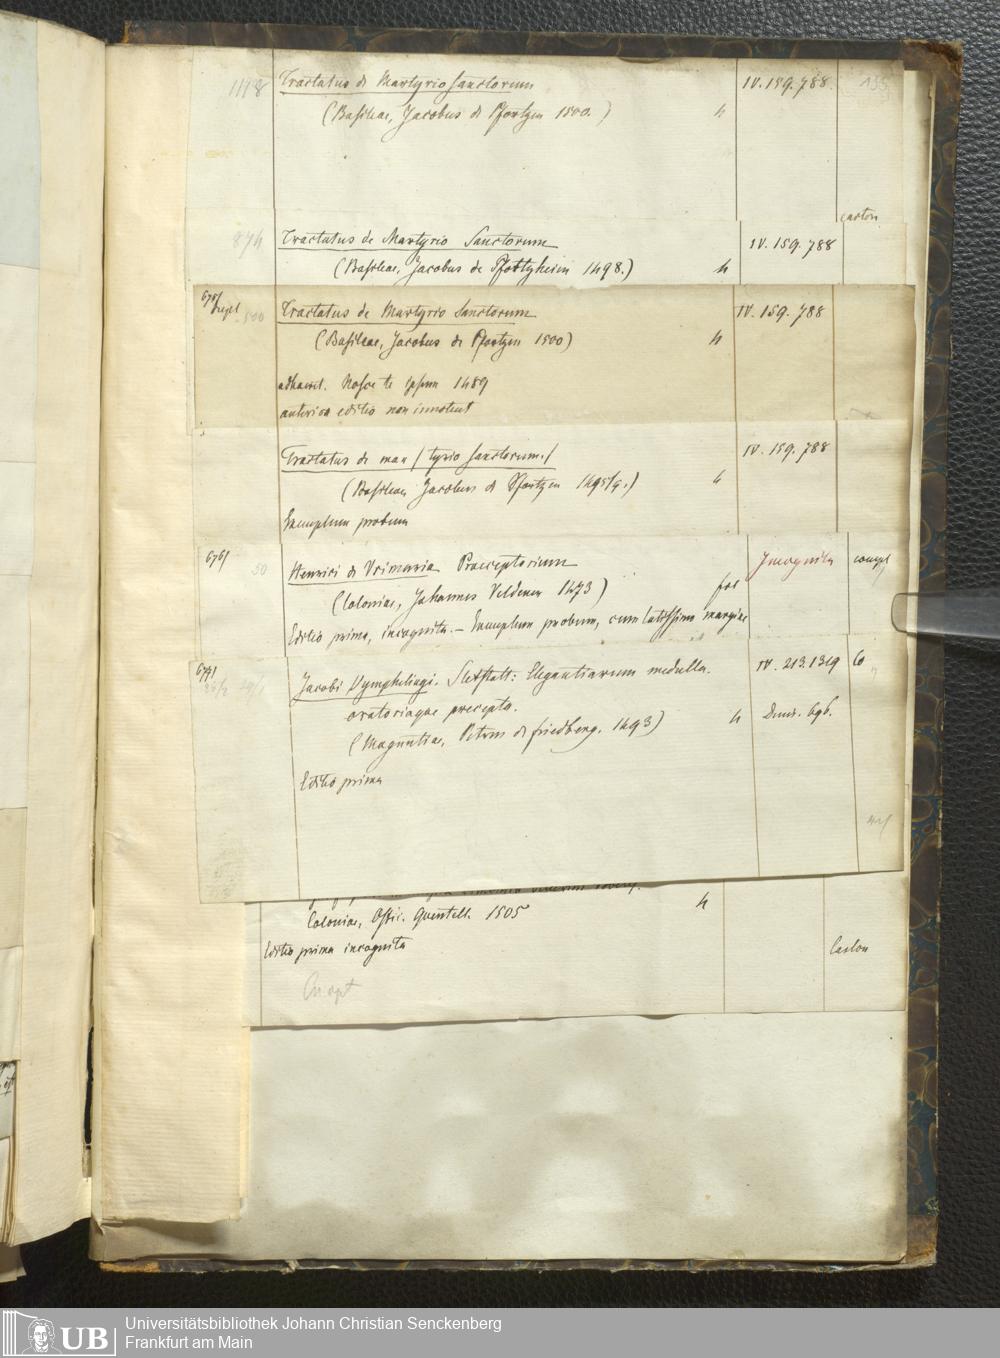 1118 Tractatus de Martyrio Sanctorum IV. 159. 788.
(Basileae, Jacobus de Pfortzen 1500.) 4
carton
874 Tractatus de Martyrio Sanctorum IV. 159. 788
(Basileae, Jacobus de Pfortzheim 1498.) 4
675/ 500 Tractatus de Martyrio Sanctorum IV. 159. 788
(Basileae, Jacobus de Pfortzen 1500) 4
adhaeret. Nosce te ipsum 1489
anterior editio non innotuit
Tractatus de mar / tyrio Sanctorum. / IV. 159. 788
(Basileae, Jacobus de Pfortzen 149 .) 4
Exemplum probum
676/ 50 Henrici de Vrimaria Praeceptorium Incognita compl
(Coloniae, Johannes Veldener 1473) fol
Editio prima, incognita. — Exemplum probum, cum latissimo margine
677/ Jacobi Vymphelingi. Sletstatt: Elegantiarum medulla. IV. 213. 1319 Co
oratoriaque precepta.
(Maguntiae, Petrus de friedberg. 1493) 4 Denis. 696.
Editio prima
Coloniae, Offic. Quentell. 1505 4
Editio prima incognita Carton
Universitätsbibliothek Johann Christian Senckenberg
UB Frankfurt am Main